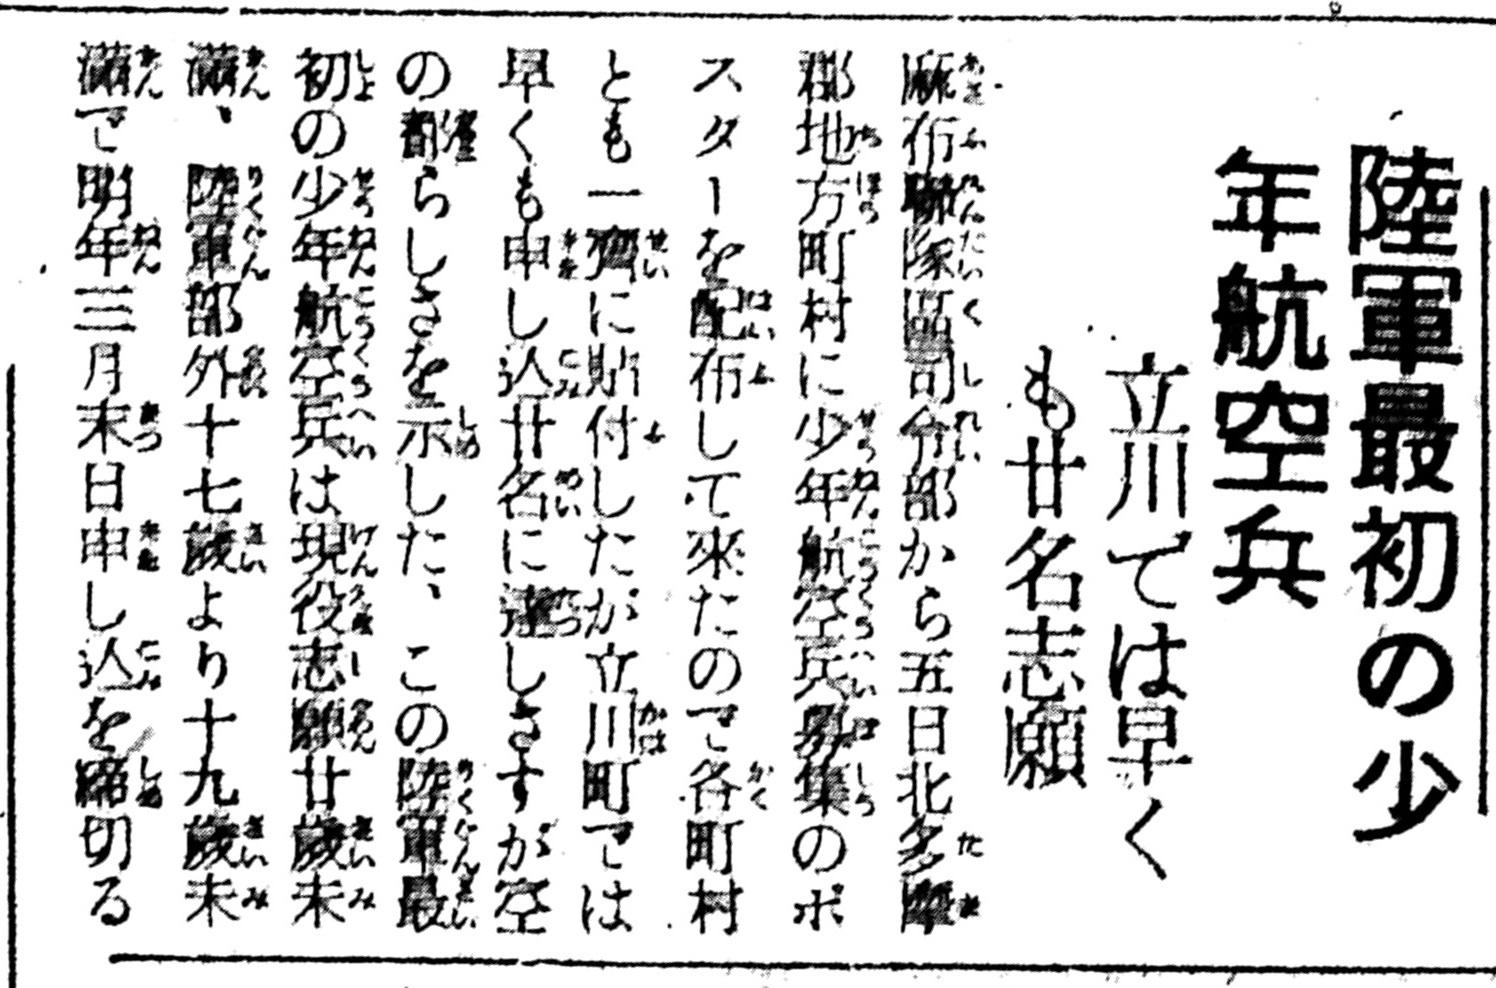 陸軍最初の少
年航空兵
立川では早く
も廿名志願
麻布聯隊區司令部から五日北多摩
郡地方町村に少年航空兵募集のポ
スターを配布して來たので各町村
とも一齊に貼付したが立川町では
早くも申し込廿名に達しさすが空
の都らしさを示した、この陸軍最
初の少年航空兵は現役志願廿歲未
滿、陸軍部外十七歲より十九歲未
滿で明年三月末日申し込を締切る